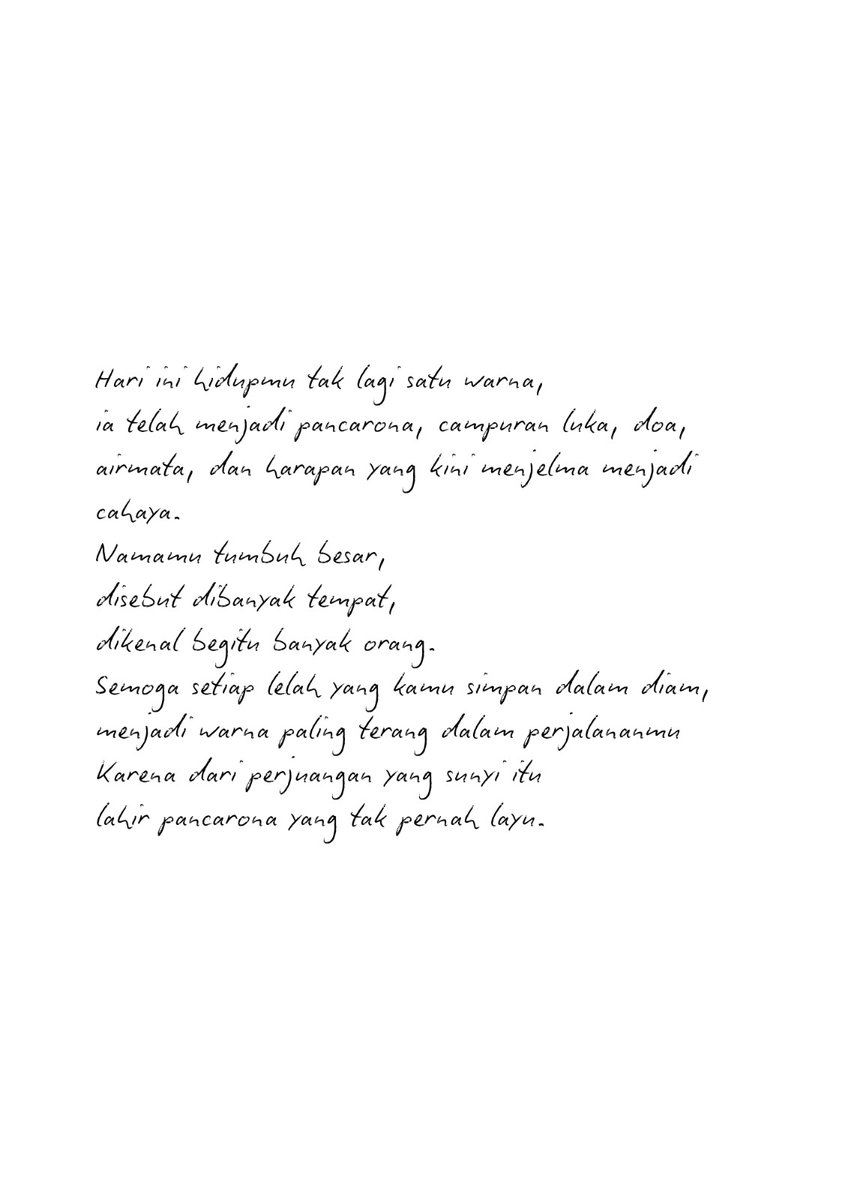 Hari ini hidupmu tak lagi satu warna,
ia telah menjadi pancarona, campuran luka, doa,
airmata, dan harapan yang kini menjelma menjadi
cahaya.
Namamu tumbuh besar,
disebut dibanyak tempat,
dikenal begitu banyak orang.
Semoga setiap lelah yang kamu simpan dalam diam,
menjadi warna paling terang dalam perjalananmu
Karena dari perjuangan yang sunyi itu
lahir pancarona yang tak pernah layu.